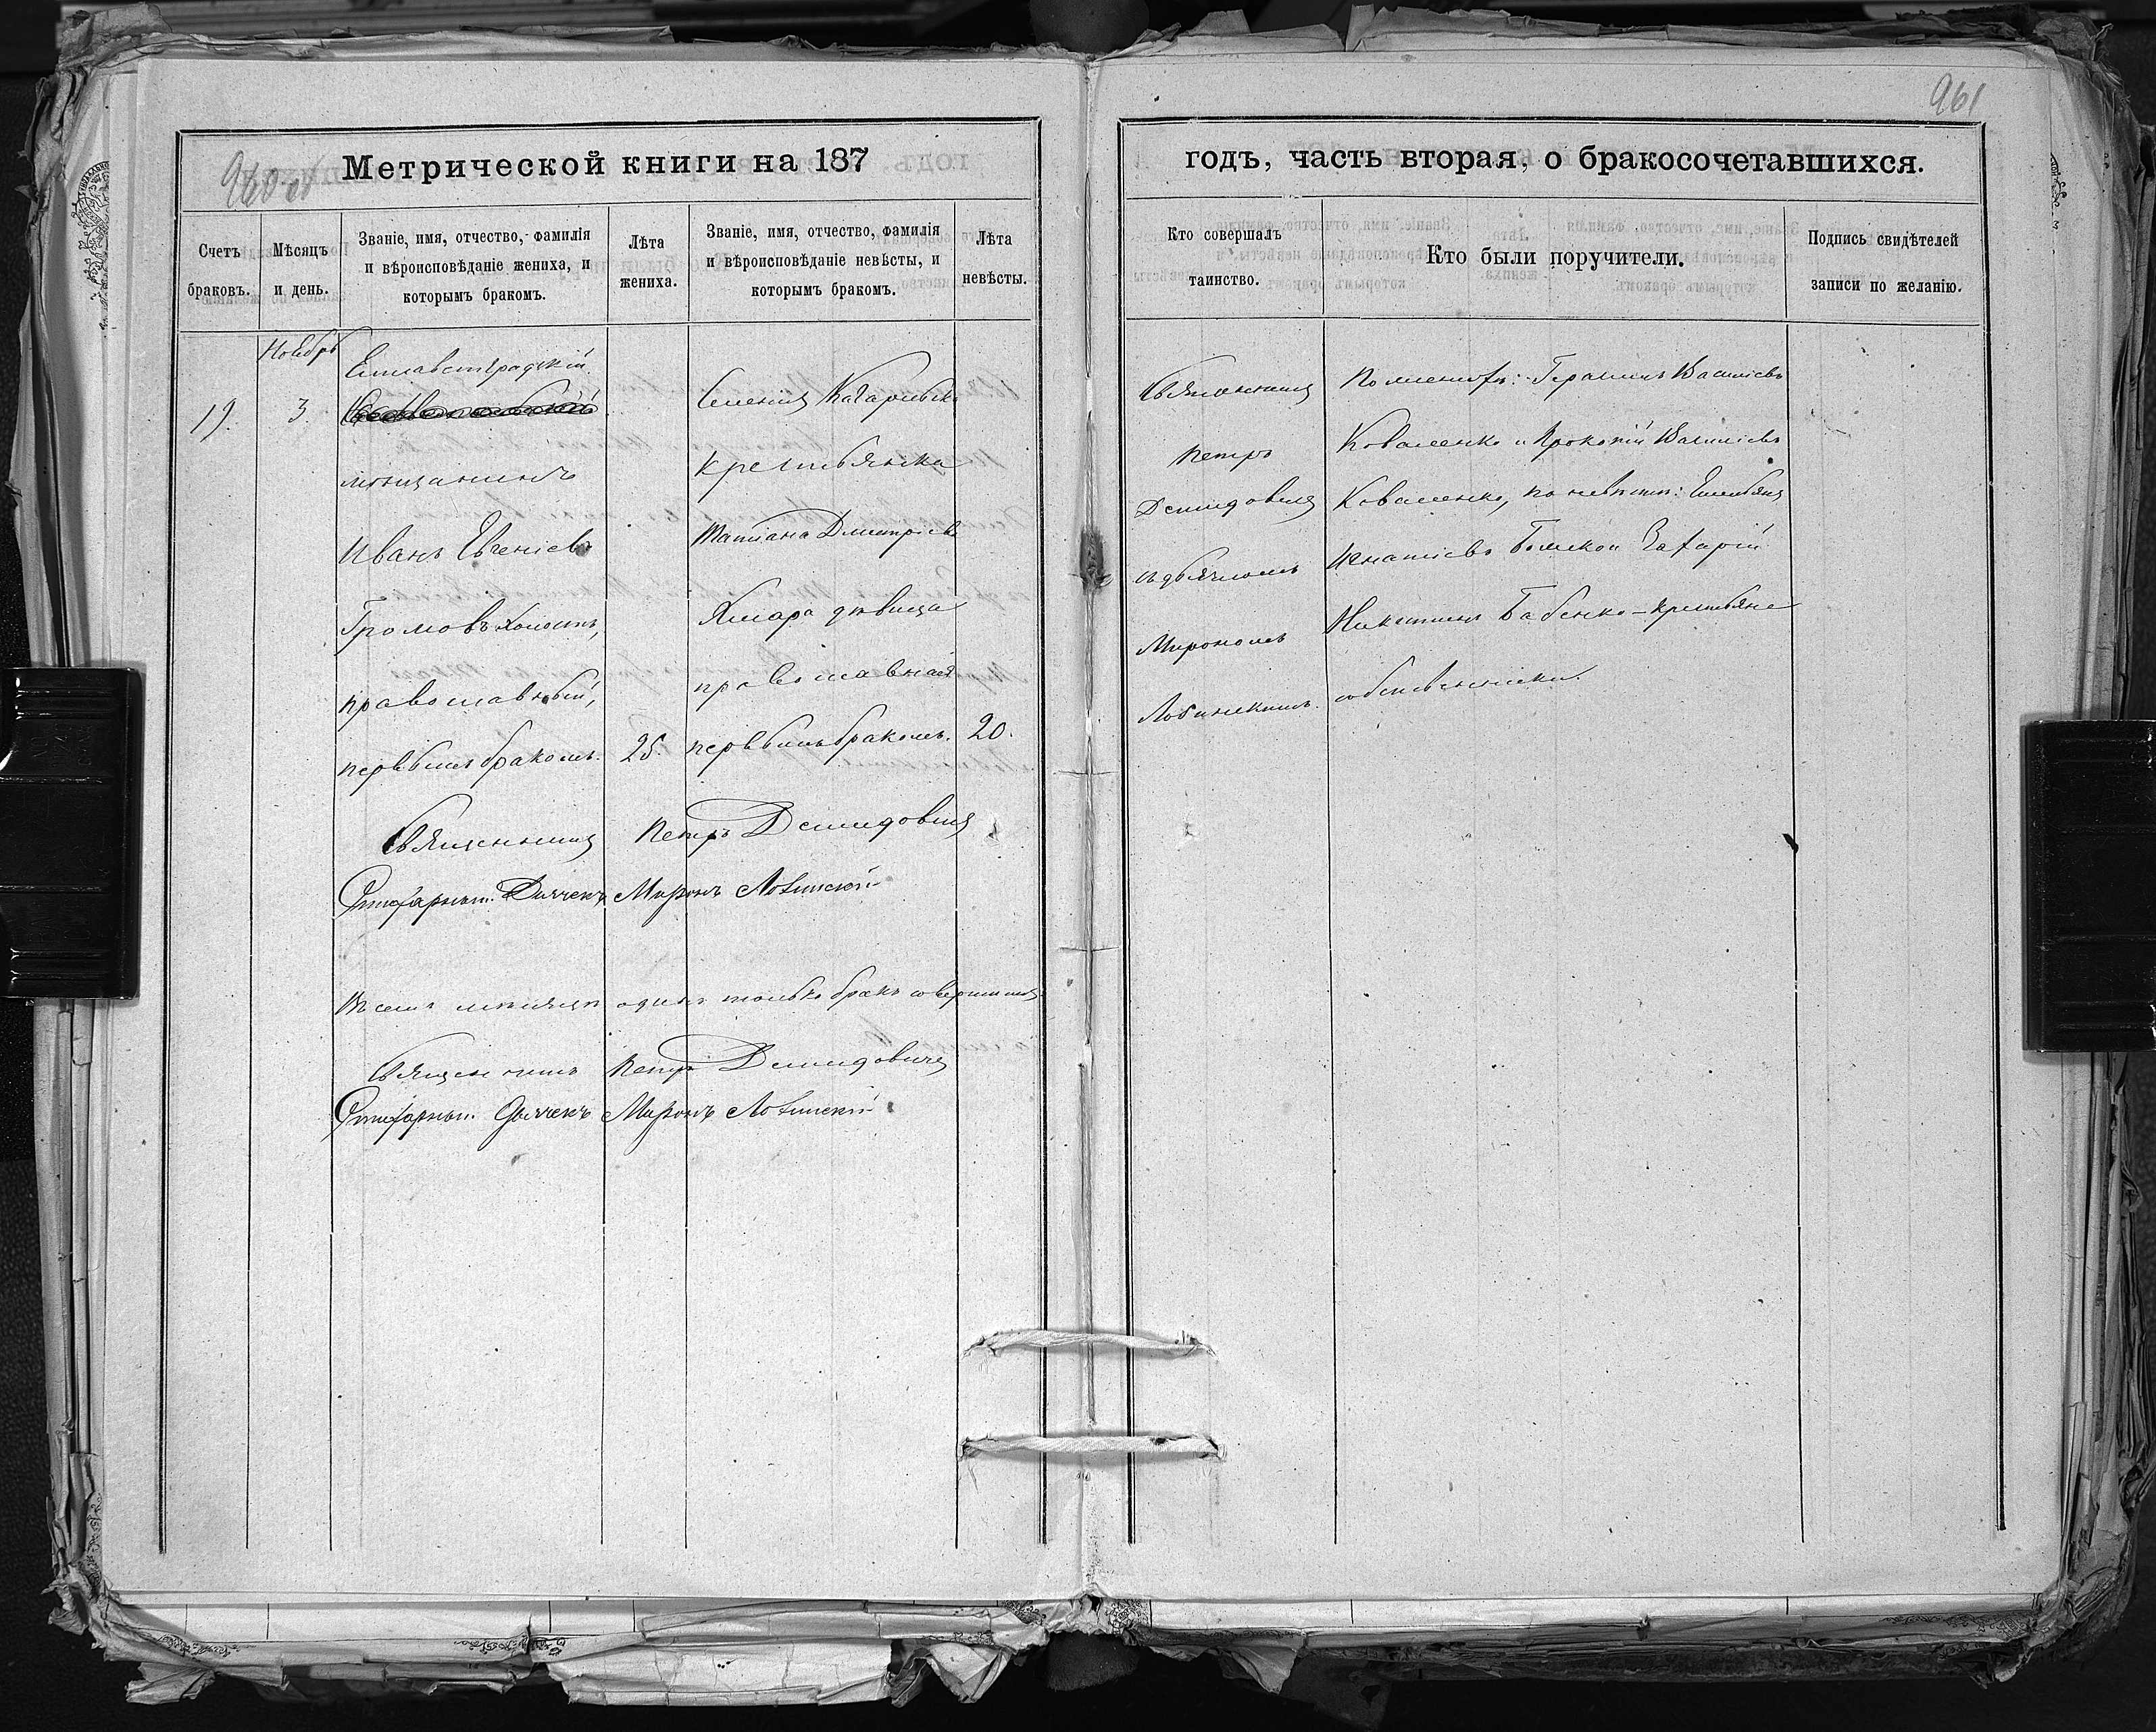 961
960 об
Метрической книги на 187
годъ, часть вторая, о бракосочетавшихся.
Счетъ браковъ.
Мѣсяцъ и день.
Званіе, имя, отчество, фамилія
и вѣроисповѣданіе жениха, и
которымъ бракомъ.
Лѣта
жениха.
Званіе, имя, отчество, фамилія
и вѣроисповѣданіе невѣсты, и
которымъ бракомъ.
Лѣта
невѣсты.
Кто совершалъ
таинство.
Кто были поручители.
Подпись свидѣтелей
записи по желанію.
Ноябрь
19.
3.
Елисаветградскій
мѣщанинъ
Иванъ Евгеніевъ
Громовъ холостъ,
православный,
первымъ бракомъ.
25.
Селенія
крестьянка
Татіана Дмитріева
дѣвица
православная
первымъ бракомъ.
20.
Священникъ Петръ Демидовичъ
Стихарный Дьячекъ Миронъ Лобинскій
Въ семъ мѣсяцѣ одинъ только бракъ совершился
Священникъ Петръ Демидовичъ
Стихарный Дьячекъ Миронъ Лобинскій
Священникъ
Петръ
Демидовичъ
съ дьячкомъ
Мирономъ
Лобинскимъ.
По жениху: Герасимъ Василіевъ
Коваленко и Прокопій Василіевъ
Коваленко, по невѣсте: Емельянъ
Игнатіевъ Захарій
Никитинъ Бабенко – крестьяне
собственники.